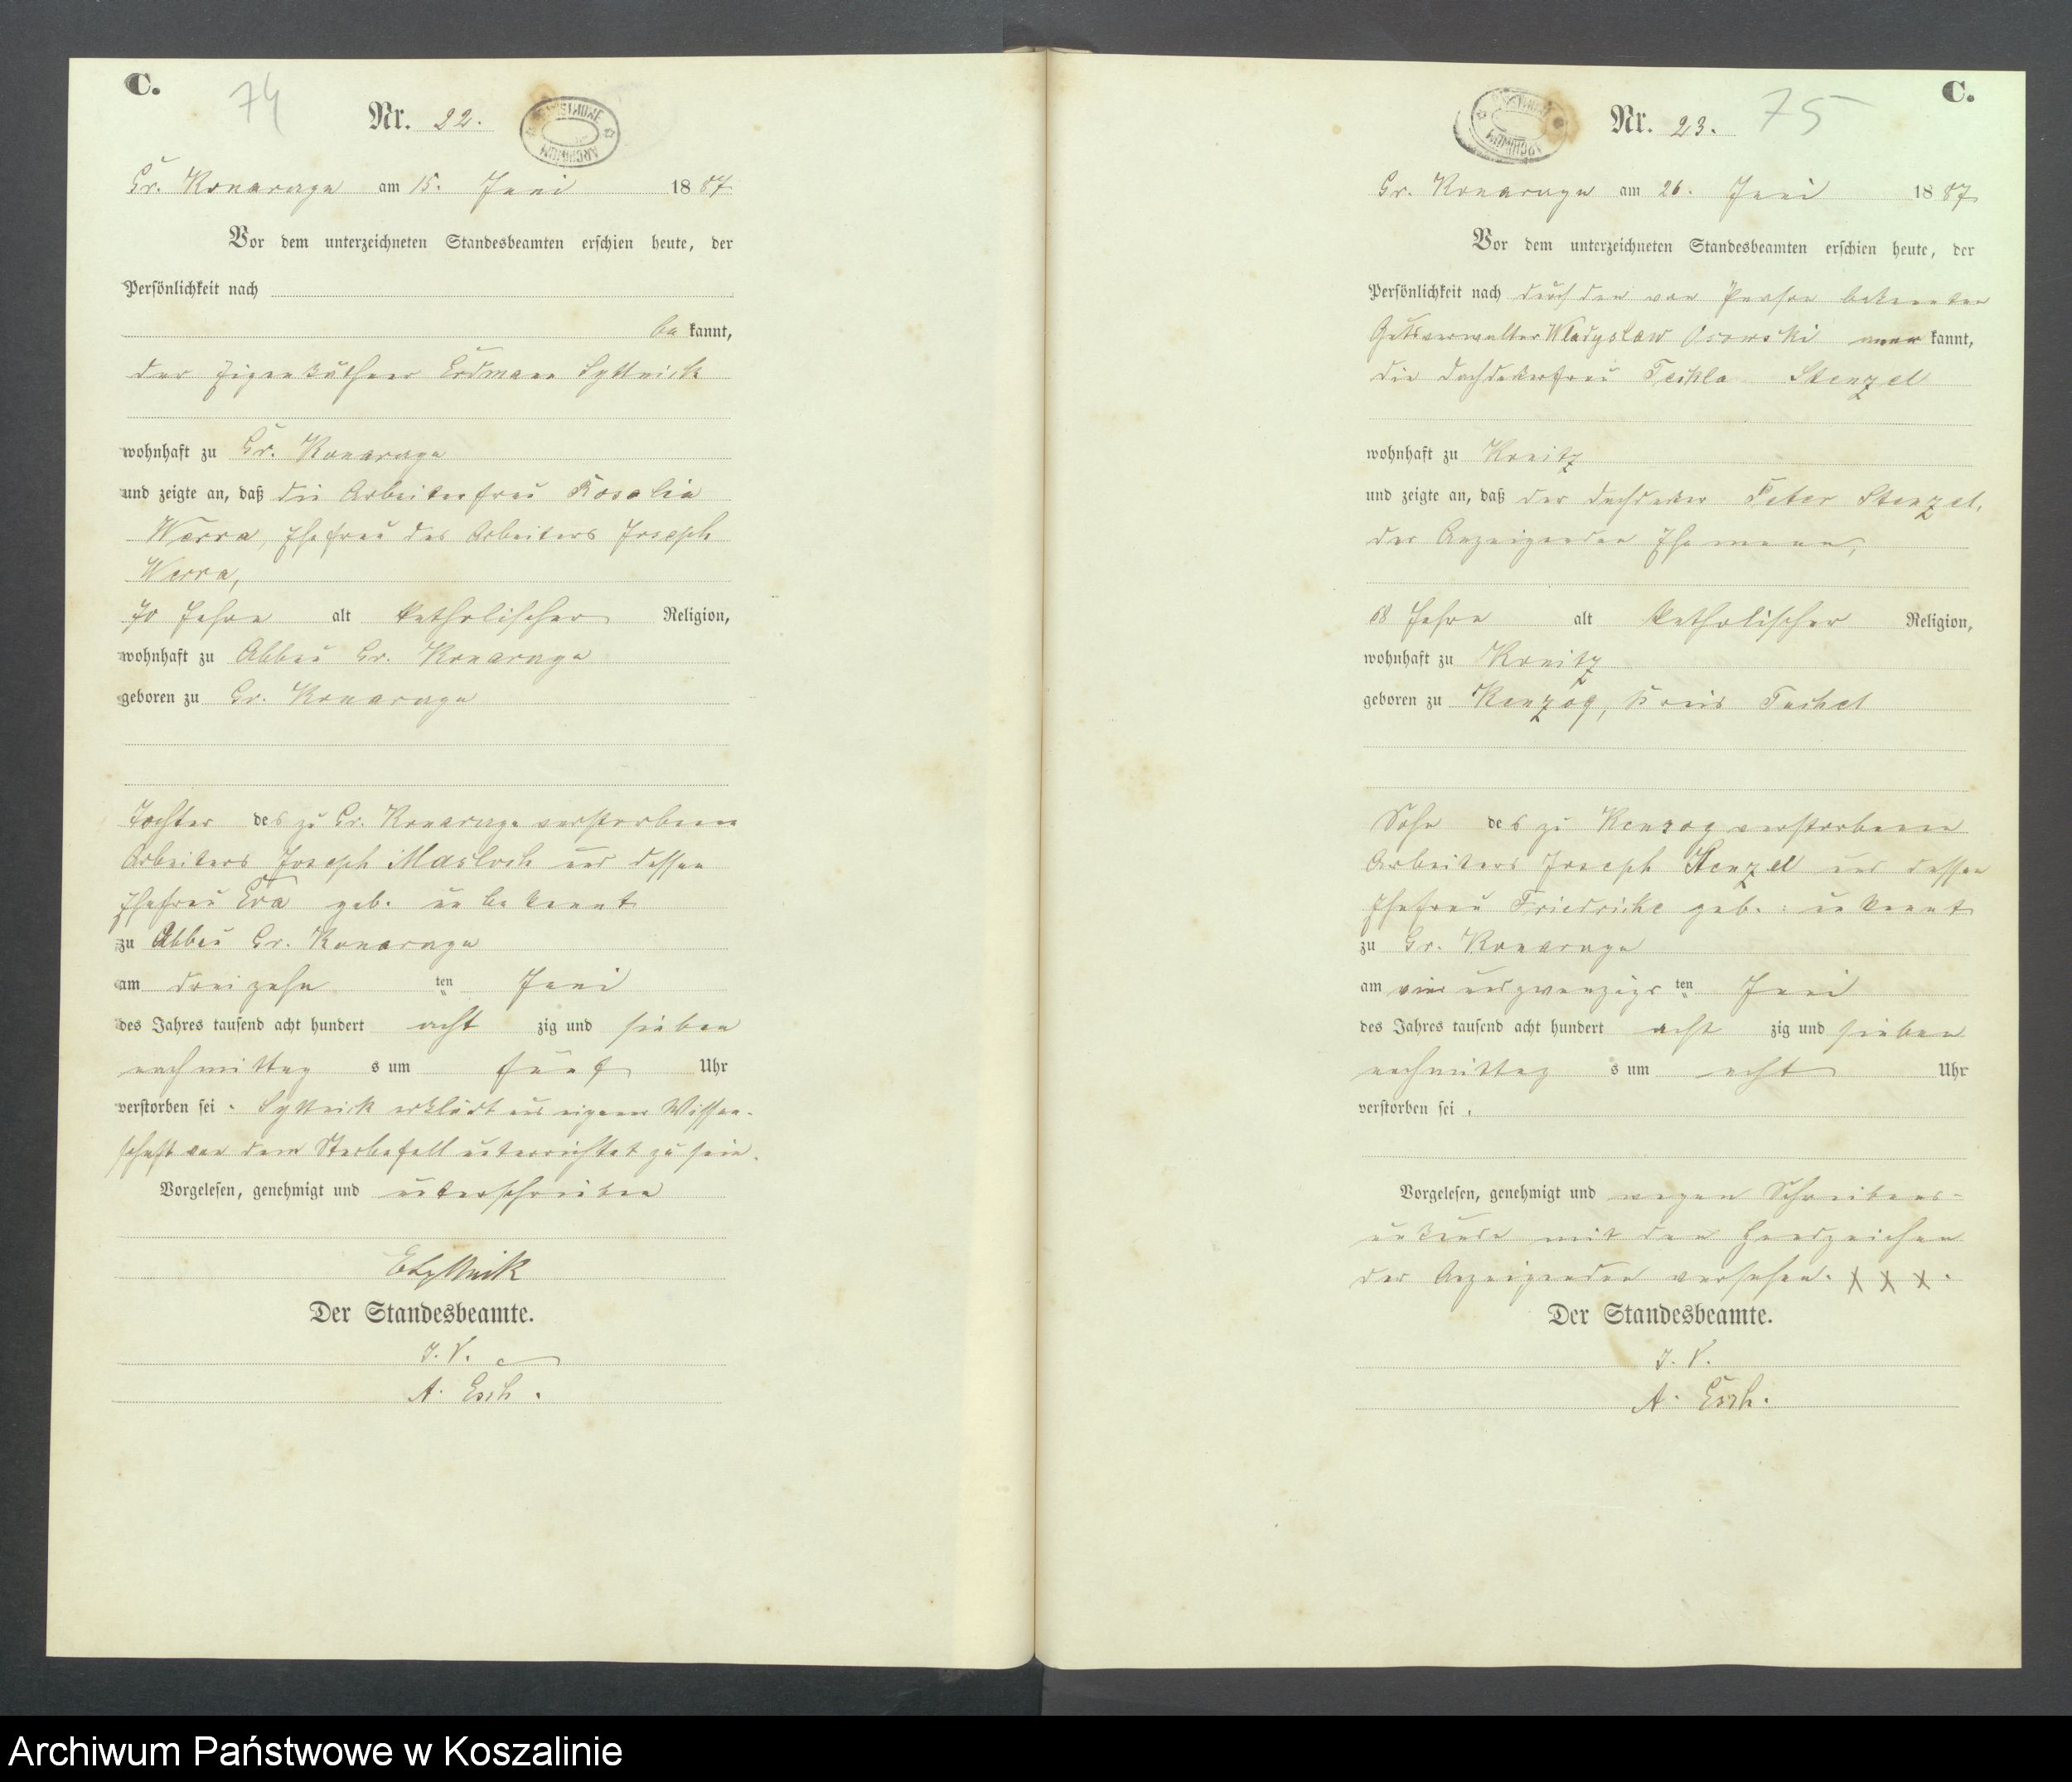 C.
74
Nr. 22.
Gr. Konarczyn am 15. Juni 1887
Vor dem unterzeichneten Standesbeamten erschien heute, der
Persönlichkeit nach
be kannt,
der Eigenkäthner Erdmann
wohnhaft zu Gr. Konarczyn
und zeigte an, daß die Arbeiterfrau Rosalia
Werra, Ehefrau des Arbeiters Joseph
Werra,
70 Jahre alt katholischer Religion,
wohnhaft zu Abbau Gr. Konarczyn
geboren zu Gr. Konarczyn
Tochter des zu Gr. Konarczyn verstorbenen
Arbeiters Joseph Masloch und dessen
Ehefrau Eva geb. unbekannt
zu Abbau Gr. Konarczyn
am dreizehn ten Juni
des Jahres tausend acht hundert acht zig und sieben
nachmittag s um fünf Uhr
verstorben sei. erklärt aus eigener Wissen-
schaft von dem Sterbefall unterrichtet zu sein.
Vorgelesen, genehmigt und unterschrieben
Der Standesbeamte.
I. V.
A. Esch.
C.
75
Nr. 23.
Gr. Konarczyn am 26. Juni 1887
Vor dem unterzeichneten Standesbeamten erschien heute, der
Persönlichkeit nach durch den von Person bekannten
Gutsverwalter Wladyslaw Osowski aner kannt,
die Dachdeckerfrau Teckla Stenzel
wohnhaft zu Konitz
und zeigte an, daß der Dachdecker Peter Stenzel,
der Anzeigenden Ehemann,
68 Jahre alt katholischer Religion,
wohnhaft zu Konitz
geboren zu Kenzog, Kreis Tuchel
Sohn des zu Kensog verstorbenen
Arbeiters Joseph Stenzel und dessen
Ehefrau Friedrike geb.: unkannt
zu Gr. Konarczyn
am vier und zwanzigs ten Juni
des Jahres tausend acht hundert acht zig und sieben
nachmittag s um acht Uhr
verstorben sei.
Vorgelesen, genehmigt und wegen Schreibens-
unkunde mit den Handzeichen
der Anzeigenden versehen. X X X.
Der Standesbeamte.
I. V.
A. Esch.
Archiwum Państwowe w Koszalinie